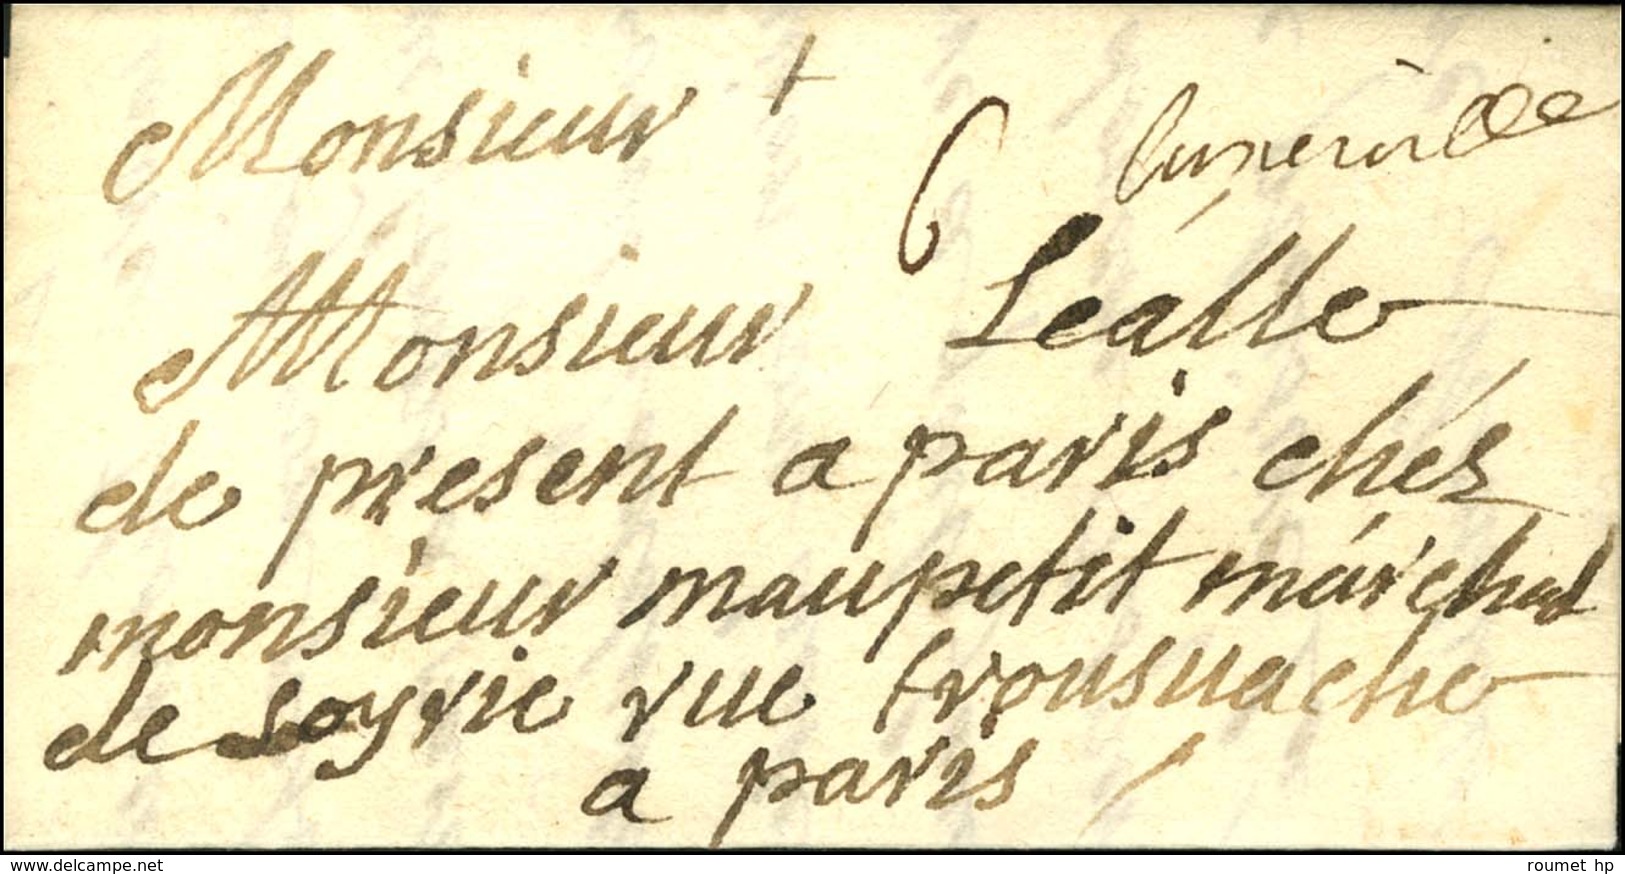 Monsieur
6 luneville
Monsieur Leálle
de present a paris chéz
monsieur maupetit márchad
de soyrie rue trousuache
a paris
www.delcampe.net
roumet_hp